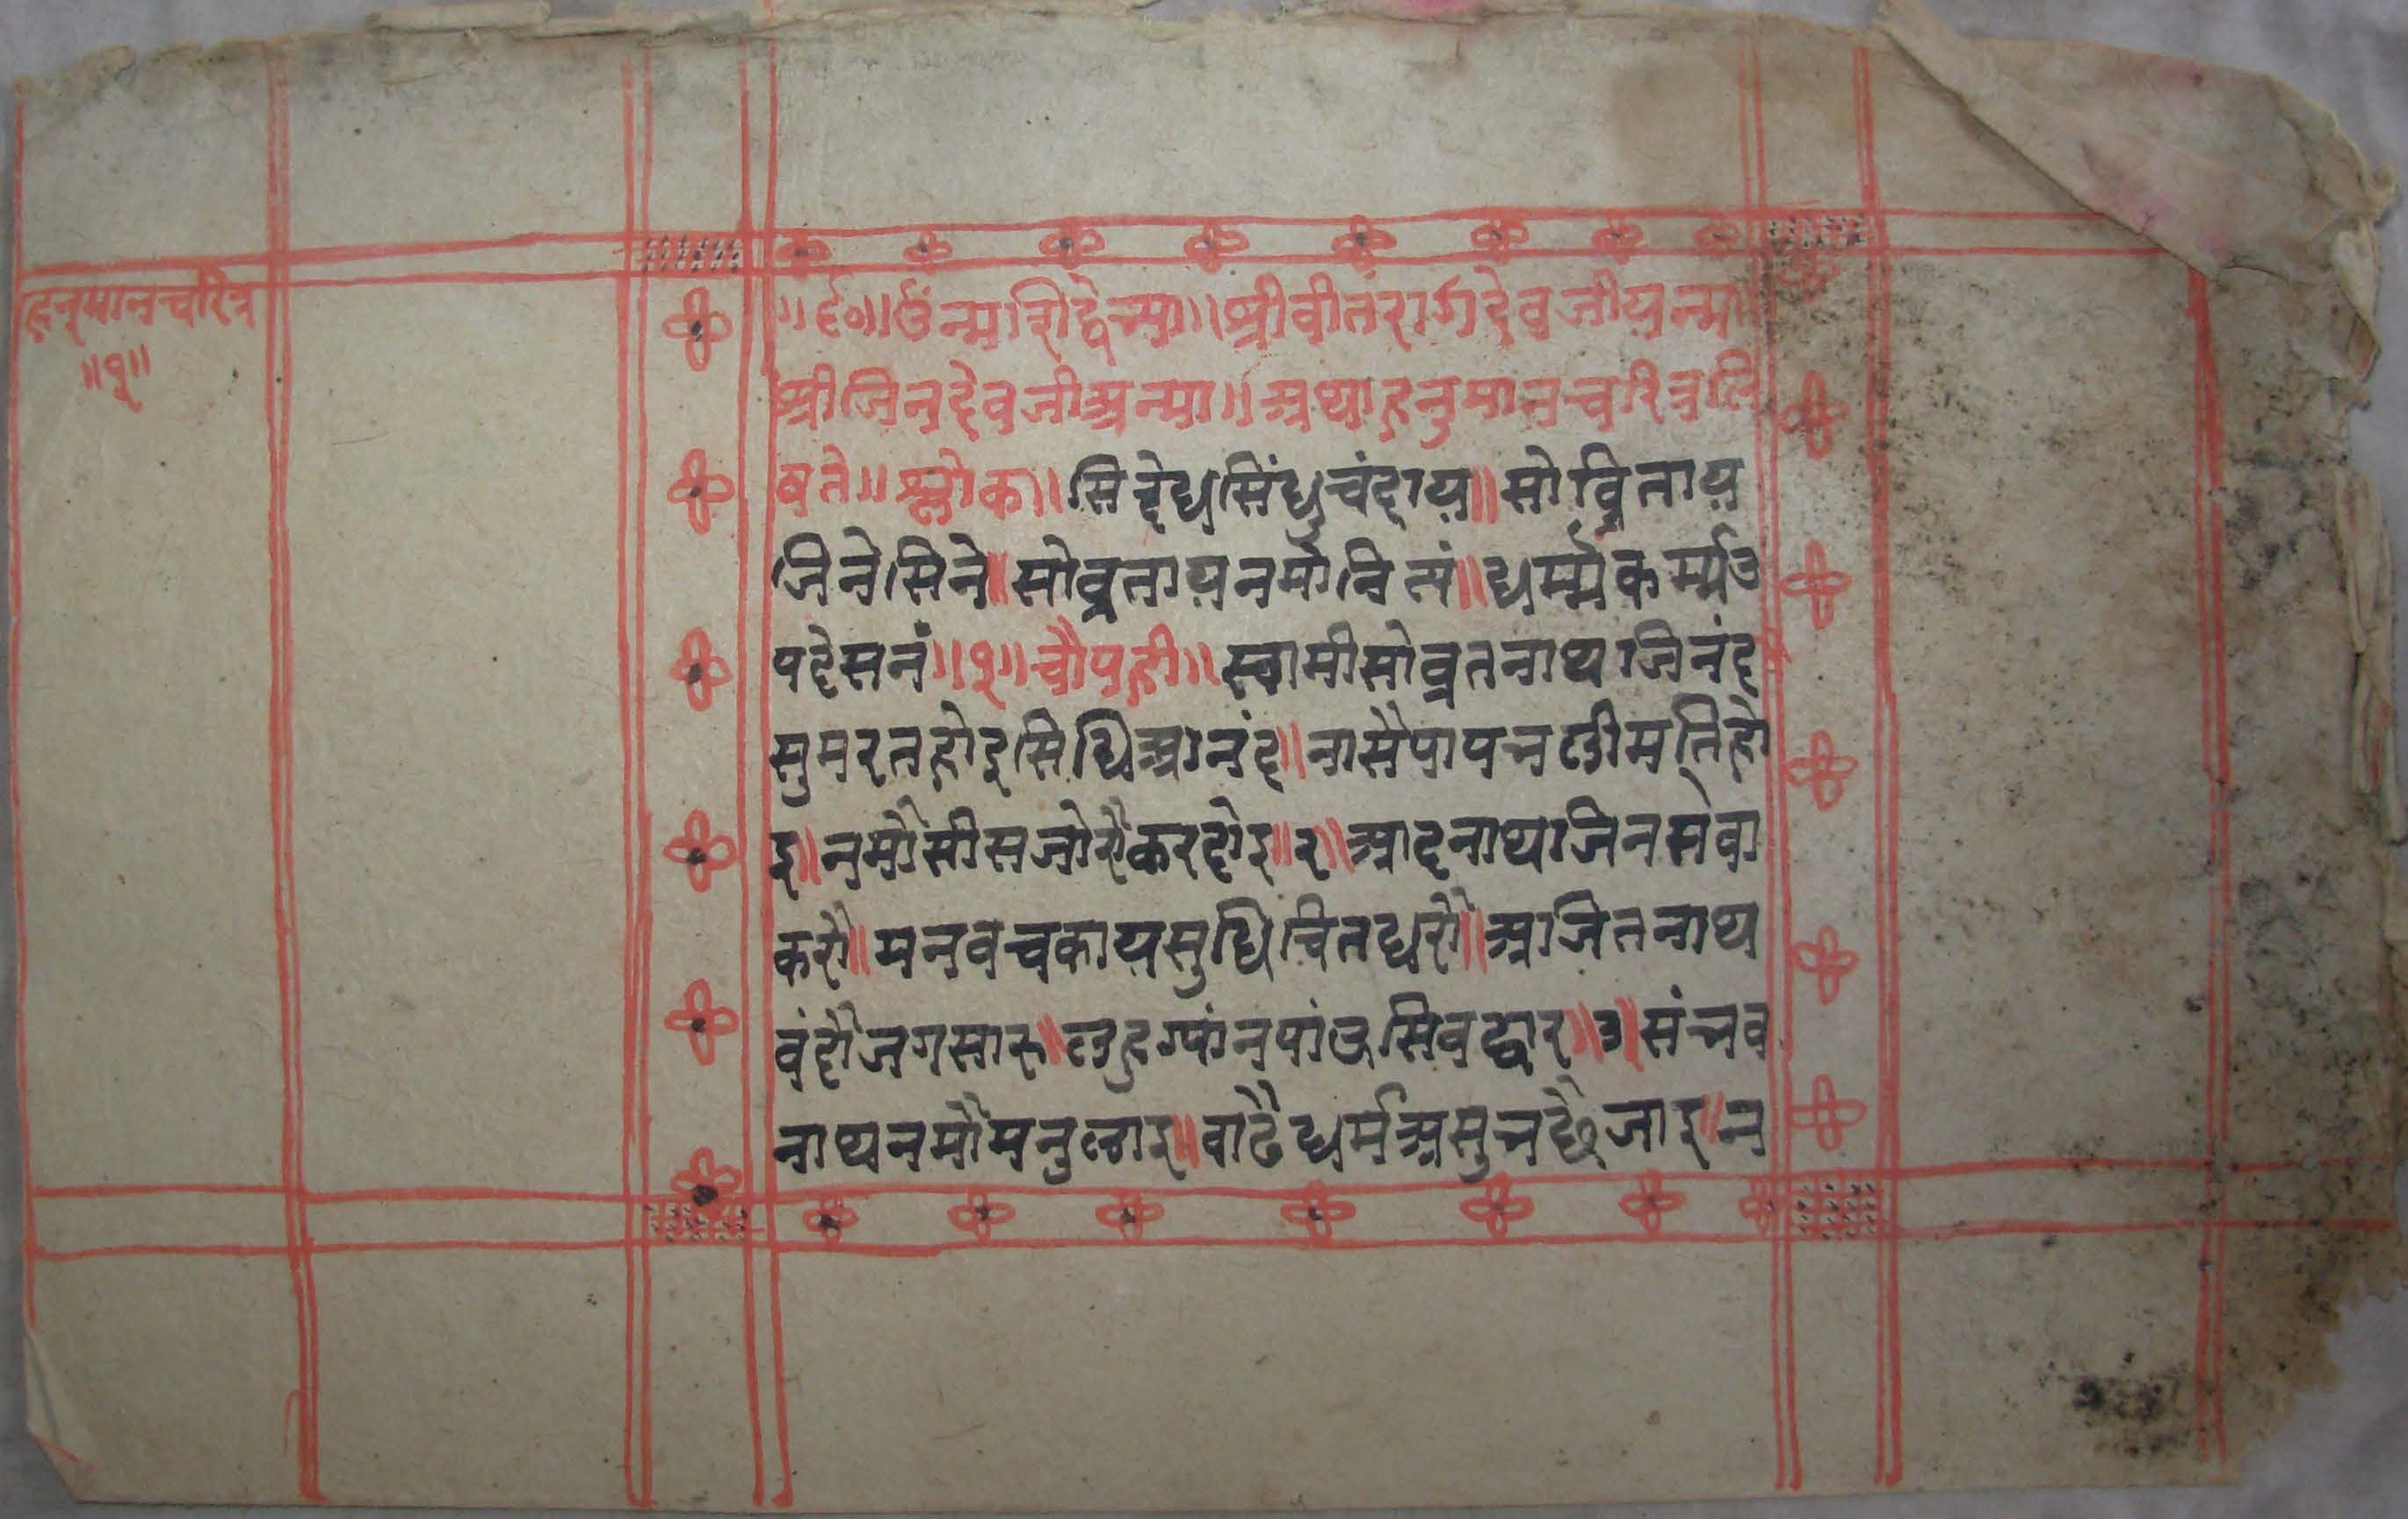 हनुमानचरित्र
॥१॥
॥र्द०॥ उं न्मः सिद्देभ्या॥ श्रीवीतरागदेवजीयन्मा
श्रीजिनदेवजीअन्मा॥ अथा हनुमानचरित्रलि
षते॥ श्लोक॥ सिद्देधसिंधुचंदाय॥ सोव्रिताय
जिनेसिने॥ सोव्रतायनमोनित्यं॥ धर्म्मकर्म्मउ
पदेसनं॥१॥ चौपही॥ स्वामीसोव्रतनाथजिनंद
सुमरतहोइसिधिआनंद॥ नासैपापनलीमतिहो
इ॥ नमौसीसजोरौकरदोइ॥२॥ आदनाथजिनसेवा
करौ॥ मनवचकायसुधिचितधरौ॥ अजितनाथ
वंदौजगसारू॥ लहुग्यांनपांऊसिवद्वार॥३॥ संनव
नाथनमौमनुलाइ॥ वाढैधर्मअसुनछैजाइ॥ न